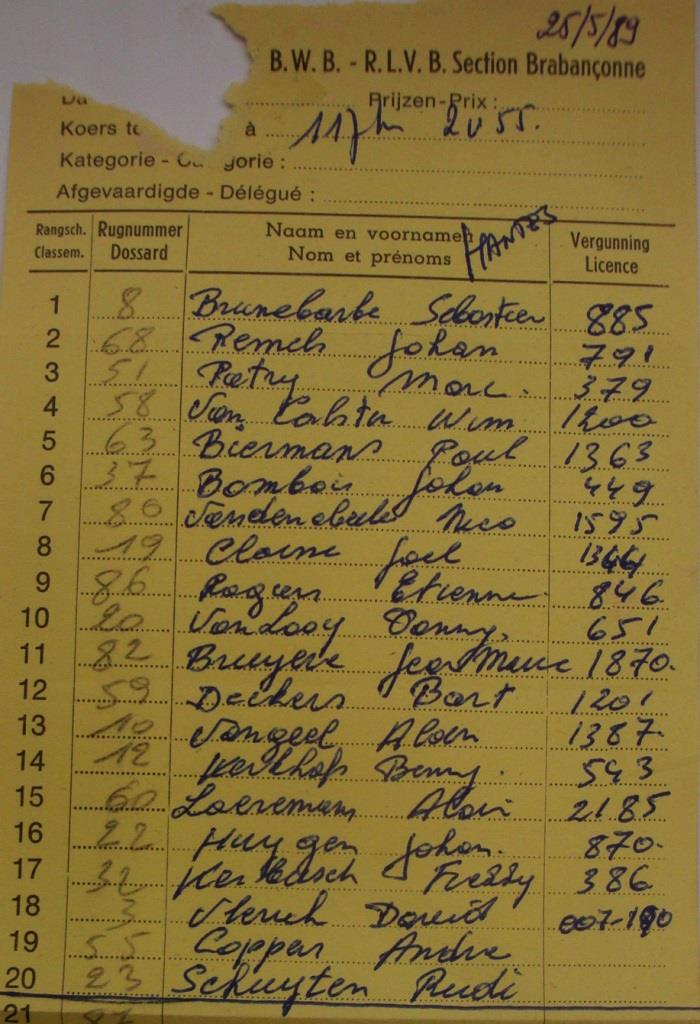 25/5/89
B.W.B. - R.L.V.B. Section Brabançonne
Prijzen-Prix :
Koers te à 117km 2u55.
Kategorie - Ca gorie :
Afgevaardigde - Délégué :
Rangsch. Classem. Rugnummer Dossard Naam en voornamen Nom et prénoms Vergunning Licence
1 8 Brunebarbe Sebastien 885
2 68 Remels Johan 791
3 51 Patry Marc. 379
4 58 Van Calster Wim 1200
5 63 Biermans Paul 1363
6 37 Bombois Johan 449
7 80 Vandenabeele Nico 1595
8 19 Claeme Joel 1344
9 86 Rogiers Etienne 846
10 20 Van Looy Danny. 651
11 82 Bruyere Jean Marie 1870
12 59 Deckers Bart 1201
13 10 Vangeel Alain 1387
14 12 Kerkhofs Benny. 543
15 60 Laeremans Alain 2185
16 22 Huygen Johan. 870
17 32 Freddy 386
18 3 David 007-190
19 55 Coppens Andre
20 23 Schuyten Rudi
21